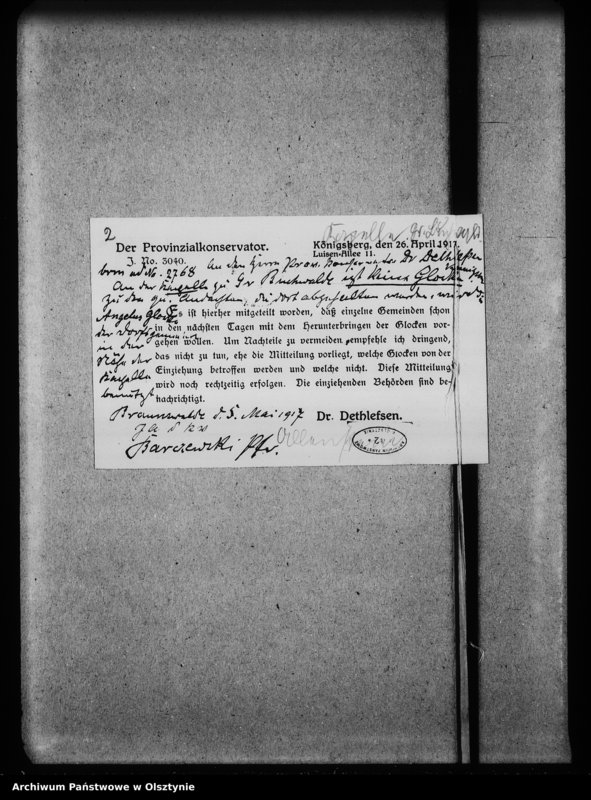 2
Kapelle Gr. Buchwalde
Der Provinzialkonservator.
Königsberg, den 26. April 1917.
J. No. 3040.
Luisen-Allee 11.
An den Herrn Prov. Dr Dethlefsen
ad No. 2768
An der Kapelle zu Gr Buchwalde ist keine Glocke
zu den Andachten, die dort abgehalten werden, wird die
Angelus Glocke
der Dorfgemeinde
in der
Nähe der
Kapelle
benutzt
Es ist hierher mitgeteilt worden, daß einzelne Gemeinden schon
in den nächsten Tagen mit dem Herunterbringen der Glocken vor-
gehen wollen. Um Nachteile zu vermeiden, empfehle ich dringend,
das nicht zu tun, ehe die Mitteilung vorliegt, welche Glocken von der
Einziehung betroffen werden und welche nicht. Diese Mitteilung
wird noch rechtzeitig erfolgen. Die einziehenden Behörden sind be-
nachrichtigt.
Braunswalde d. 5. Mai 1917
Dr. Dethlefsen.
Barczewski Pfr.
Archiwum Państwowe w Olsztynie